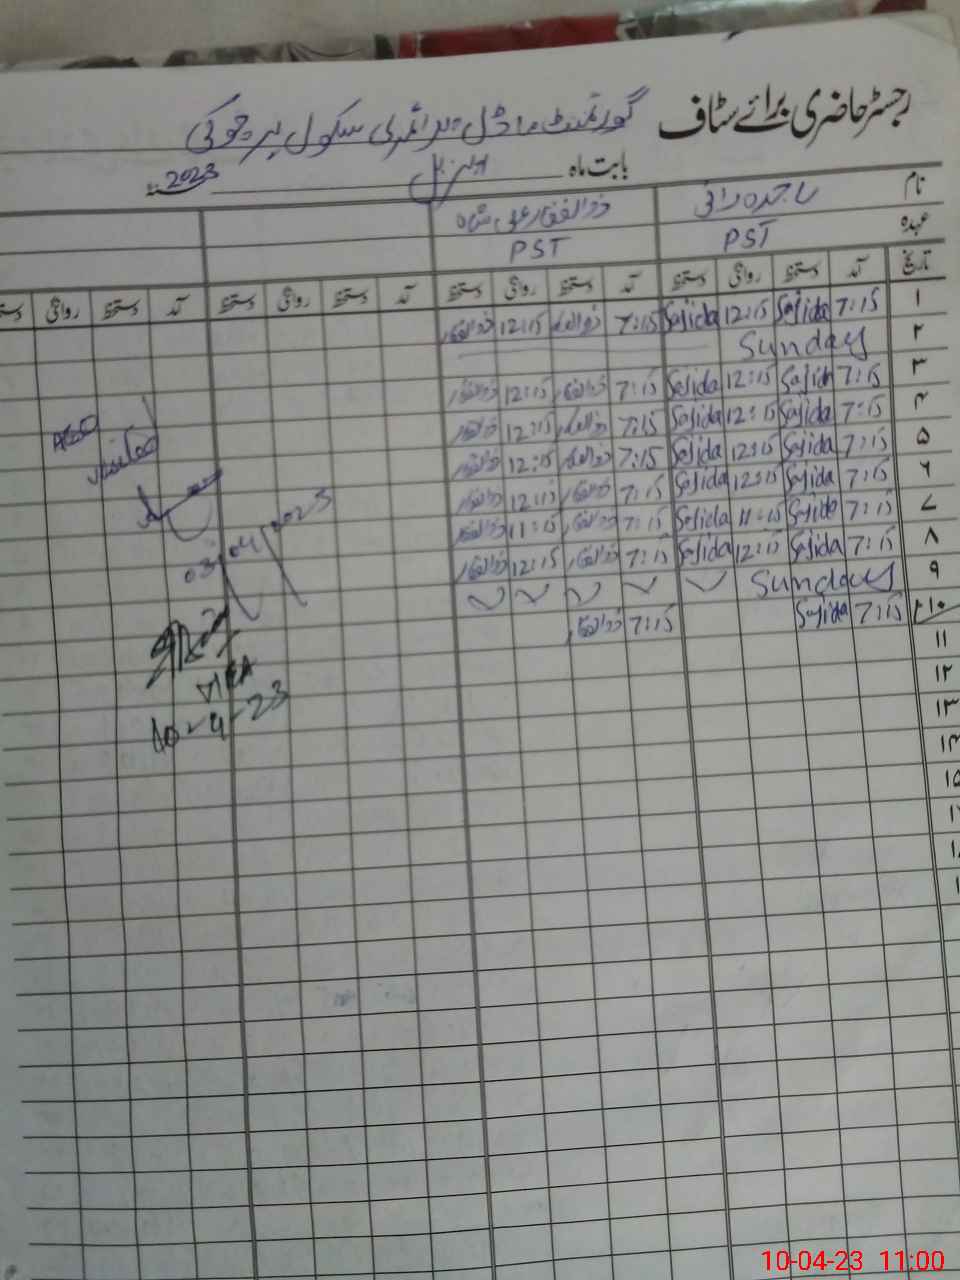 رجسٹر حاضری برائے سٹاف گورنمنٹ ماڈل پرائمری سکول پیر چوکی
بابت ماہ اپریل 2023
نام ساجدہ رانی ذوالفقار علی شاہ
عہدہ PST PST
تاریخ آمد دستخط روانگی دستخط آمد دستخط روانگی دستخط آمد دستخط روانگی دستخط آمد دستخط روانگی دستخط
۱ 7:15 Sajida 12:15 Sajida 7:15 ذوالفقار 12:15 ذوالفقار
۲ Sunday
۳ 7:15 Sajida 12:15 Sajida 7:15 ذوالفقار 12:15 ذوالفقار
۴ 7:15 Sajida 12:15 Sajida 7:15 ذوالفقار 12:15 ذوالفقار
۵ 7:15 Sajida 12:15 Sajida 7:15 ذوالفقار 12:15 ذوالفقار
۶ 7:15 Sajida 12:15 Sajida 7:15 ذوالفقار 12:15 ذوالفقار
۷ 7:15 Sajida 11:15 Sajida 7:15 ذوالفقار 11:15 ذوالفقار
۸ 7:15 Sajida 12:15 Sajida 7:15 ذوالفقار 12:15 ذوالفقار
۹ Sunday
۱۰ 7:15 Sajida 7:15 ذوالفقار
۱۱
۱۲
۱۳
۱۴
۱۵
visited
03/04/2023
MEA
10-4-23
10-04-23 11:00